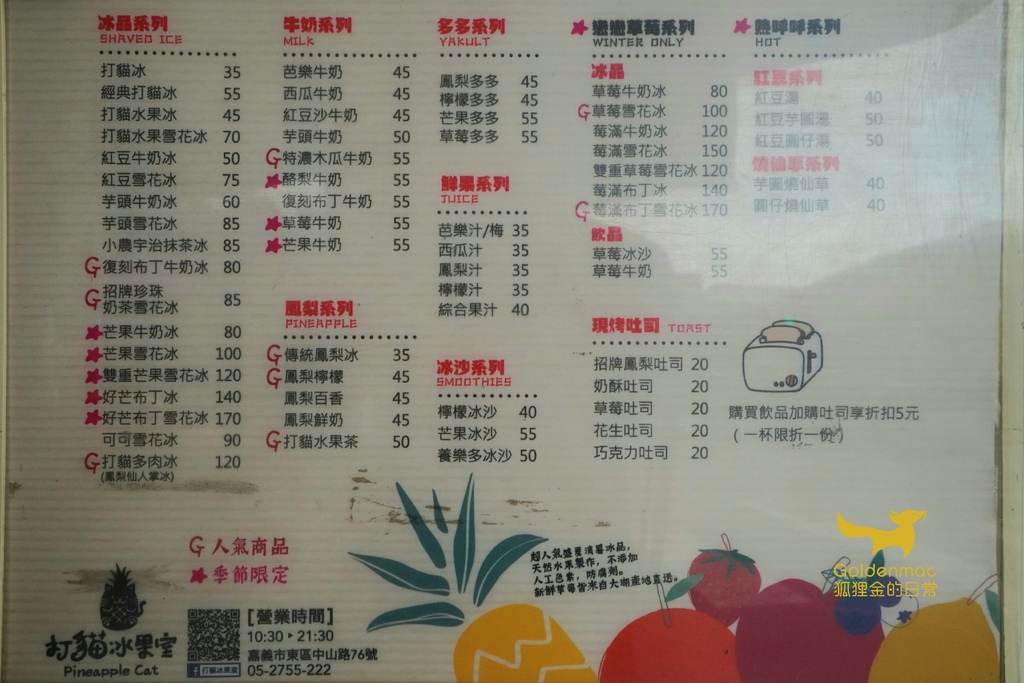 冰品系列
SHAVED ICE
打貓冰 35
經典打貓冰 55
打貓水果冰 45
打貓水果雪花冰 70
紅豆牛奶冰 50
紅豆雪花冰 75
芋頭牛奶冰 60
芋頭雪花冰 85
小農宇治抹茶冰 85
G 復刻布丁牛奶冰 80
G 招牌珍珠
奶茶雪花冰 85
芒果牛奶冰 80
芒果雪花冰 100
雙重芒果雪花冰 120
好芒布丁冰 140
好芒布丁雪花冰 170
可可雪花冰 90
G 打貓多肉冰 120
(鳳梨仙人掌冰)
牛奶系列
MILK
芭樂牛奶 45
西瓜牛奶 45
紅豆沙牛奶 45
芋頭牛奶 50
G 特濃木瓜牛奶 55
酪梨牛奶 55
復刻布丁牛奶 55
草莓牛奶 55
芒果牛奶 55
鳳梨系列
PINEAPPLE
G 傳統鳳梨冰 35
G 鳳梨檸檬 45
鳳梨百香 45
鳳梨鮮奶 45
G 打貓水果茶 50
多多系列
YAKULT
鳳梨多多 45
檸檬多多 45
芒果多多 55
草莓多多 55
鮮果系列
JUICE
芭樂汁/梅 35
西瓜汁 35
鳳梨汁 35
檸檬汁 35
綜合果汁 40
冰沙系列
SMOOTHIES
檸檬冰沙 40
芒果冰沙 55
養樂多冰沙 50
戀戀草莓系列
WINTER ONLY
冰品
草莓牛奶冰 80
G 草莓雪花冰 100
莓滿牛奶冰 120
莓滿雪花冰 150
雙重草莓雪花冰 120
莓滿布丁冰 140
G 莓滿布丁雪花冰 170
飲品
草莓冰沙 55
草莓牛奶 55
現烤吐司 TOAST
招牌鳳梨吐司 20
奶酥吐司 20
草莓吐司 20
花生吐司 20
巧克力吐司 20
熱呼呼系列
HOT
紅豆系列
紅豆湯 40
紅豆芋圓湯 50
紅豆圓仔湯 50
燒仙草系列
芋圓燒仙草 40
圓仔燒仙草 40
購買飲品加購吐司享折扣5元
(一杯限折一份)
G 人氣商品
季節限定
超人氣盛夏消暑冰品,
天然水果製作,不添加
人工色素,防腐劑。
新鮮草莓皆來自大湖產地直送。
打貓冰果室
Pineapple Cat
打貓冰果室
[營業時間]
10:30 ▸ 21:30
嘉義市東區中山路76號
05-2755-222
Goldenmac
狐狸金的日常